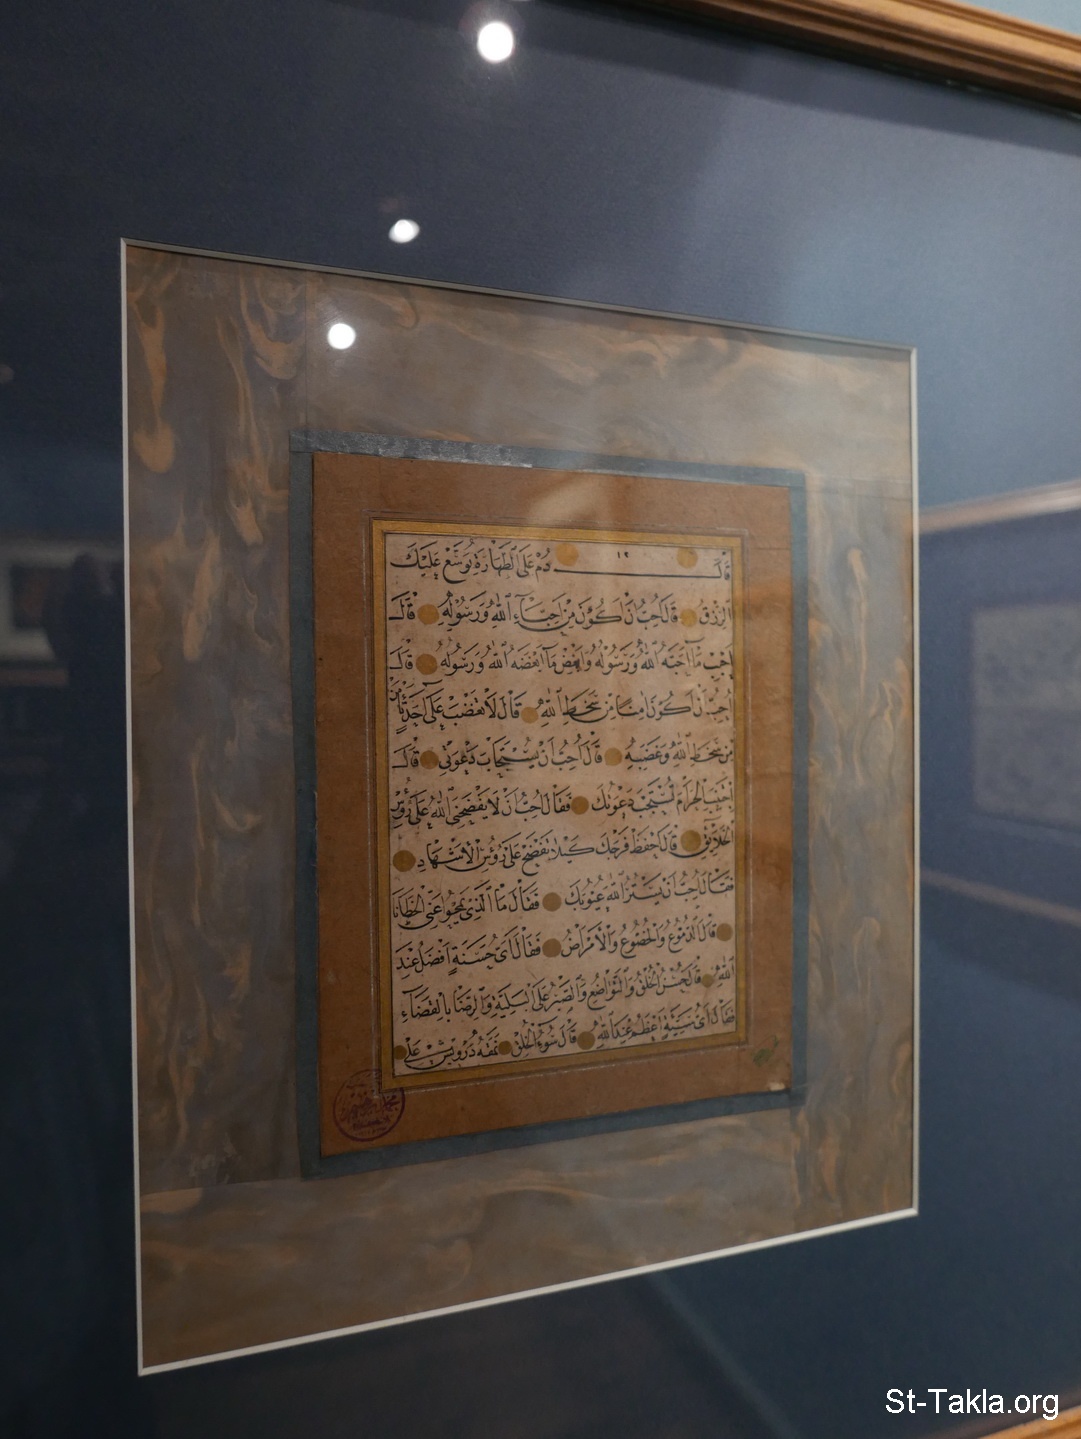 ١٢
قَالَ دُمْ عَلَى الطَّهَارَةِ يُوَسَّعْ عَلَيْكَ
الرِّزْقُ قَالَ أُحِبُّ أَنْ أَكُونَ مِنْ أَحِبَّاءِ اللهِ وَرَسُولِهِ قَالَ
أَحِبَّ مَا أَحَبَّهُ اللهُ وَرَسُولُهُ وَابْغِضْ مَا أَبْغَضَهُ اللهُ وَرَسُولُهُ قَالَ
أُحِبُّ أَنْ أَكُونَ آمِنًا مِنْ سَخَطِ اللهِ قَالَ لَا تَغْضَبْ عَلَى أَحَدٍ
مِنْ سَخَطِ اللهِ وَغَضَبِهِ قَالَ أُحِبُّ أَنْ يُسْتَجَابَ دَعْوَتِي قَالَ
اجْتَنِبِ الْحَرَامَ تُسْتَجَبْ دَعْوَتُكَ فَقَالَ أُحِبُّ أَنْ لَا يَفْضَحَنِي اللهُ عَلَى رُؤُسِ
الْخَلَائِقِ قَالَ احْفَظْ فَرْجَكَ كَيْلَا تُفْضَحَ عَلَى رُؤُسِ الْأَشْهَادِ
فَقَالَ أُحِبُّ أَنْ يَسْتُرَ اللهُ عُيُوبَكَ فَقَالَ مَا الَّذِي يَمْحُوا عَنِّي الْخَطَايَا
قَالَ الدُّمُوعُ وَالْخُضُوعُ وَالْأَمْرَاضُ فَقَالَ أَيُّ حَسَنَةٍ أَفْضَلُ عِنْدَ
اللهِ قَالَ حُسْنُ الْخُلْقِ وَالتَّوَاضُعُ وَالصَّبْرُ عَلَى الْبَلِيَّةِ وَالرِّضَا بِالْقَضَاءِ
فَقَالَ أَيُّ سَيِّئَةٍ أَعْظَمُ عِنْدَ اللهِ قَالَ سُوءُ الْخُلْقِ نَمَقَهُ دَرْوِيشْ عَلِي
St-Takla.org